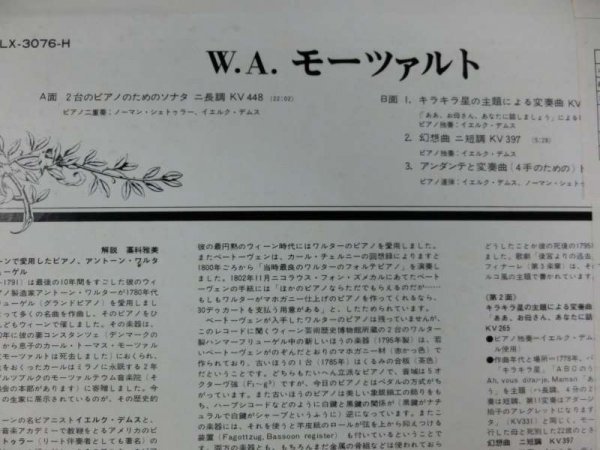 LX-3076-H
W.A. モーツァルト
A面 2台のピアノのためのソナタ ニ長調 KV 448 (22:02)
ピアノ二重奏:ノーマン・シェトゥラー、イエルク・デムス
B面 1. キラキラ星の主題による変奏曲 KV
「ああ、お母さん、あなたに話しましょう」による
ピアノ独奏:イエルク・デムス
2. 幻想曲 ニ短調 KV 397 (5:28)
ピアノ独奏:イエルク・デムス
3. アンダンテと変奏曲(4手のための)
ピアノ連弾:イエルク・デムス、ノーマン・シェトゥ
解説 藁科雅美
ーンで愛用したピアノ、アントーン・ワルタ
ューゲル
-1791)は最後の10年間をすごした彼のウィ
ピアノ製造家アントーン・ワルターが1780年代
リューゲル(グランドピアノ)を愛用しまし
って多くの名曲を作曲し、そのピアノをひ
どもウィーンで催しました。その楽器は、
0年に彼の妻コンスタンツェ(デンマークの
から息子のカール・トーマス・モーツァルト
モーツァルトは死去しました)におくられ、
をおくったカールはミラノに永眠する2年
ルツブルクのモーツァルテウム音楽院(
協会の本部があります)に寄贈しました。今
の生家に展示されているが、その歴史的
ーンの名ピアニストイエルク・デムスと、
音楽アカデミーで教鞭をとるアメリカのピ
トゥラー(リート伴奏者としても著名)の
彼の最円熟のウィーン時代にはワルターのピアノを愛用しました。
またベートーヴェンは、カール・チェルニーの回想録によりますと
1800年ごろから「当時最良のワルターのフォルテピアノ」を演奏し
ました。1802年11月ニコラウス・フォン・ズメスカルにあてたベート
ーヴェンの手紙には「ほかのピアノならただでもらえるのだが……
もしもワルターがマホガニー仕上げのピアノを作ってくれるなら、
30デゥカートを支払う用意がある」と、したためられています。
ベートーヴェンが入手したワルターのピアノは残っていませんが、
このレコードに聞くウィーン芸術歴史博物館所蔵の2台のワルター
製ハンマーフリューゲル中の新しいほうの楽器(1795年製)は、若
いベートーヴェンがのぞんだとおりのマホガニー材(赤かっ色)で
作られており、古いほうの1台(1785年)はくるみの合板(茶色)
だということです。どちらもたいへん立派なピアノで、音域は5オ
クターヴ強(F₁~g³)ですが、今日のピアノとはペダルの方式がち
がっています。また古いほうのピアノは美しい象眼細工の飾りをも
ち、ハープシコードなどのように白鍵と黒鍵の関係が(黒鍵がナチ
ュラルで白鍵がシャープというふうに)逆になっています。またこ
の楽器には、それを使うと羊皮紙のロールが弦を上から抑えつける
装置(Fagottzug, Bassoon register)も付いているということで
どうしたことか彼の死後の1795
ました。歌劇《後宮よりの逃走
フィナーレ(第3楽章)は、そ
ルコ風の主題で書かれています
(第2面)
キラキラ星の主題による変奏曲
「ああ、お母さん、あなたに話
KV 265
●ピアノ独奏=イエルク・デムス
使用。
●作曲年代と場所=1778年、パ
キラキラ星「ABCのう
う」を主題
ん」による
拍子のアレグレットになります
(KV331)と同じく、モーツァル
幻想曲 ニ短調 KV 397